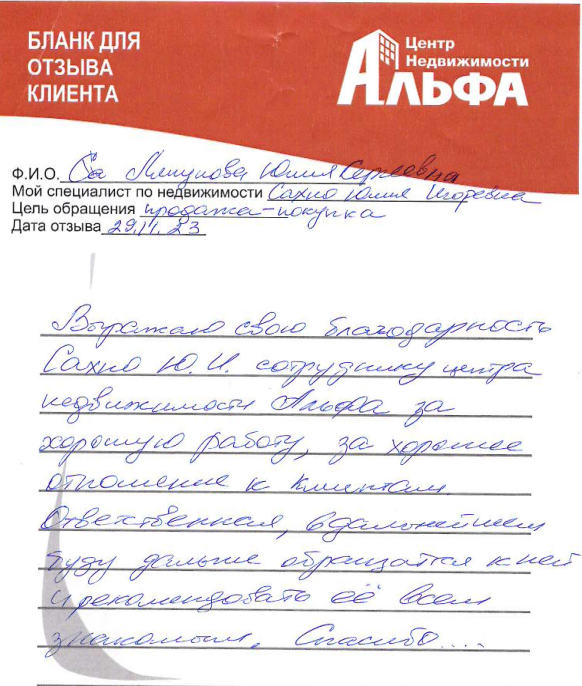 БЛАНК ДЛЯ
ОТЗЫВА
КЛИЕНТА
Центр
Недвижимости
АЛЬФА
Ф.И.О. Юлия Сергеевна
Мой специалист по недвижимости Сахно Юлия Игоревна
Цель обращения продажа-покупка
Дата отзыва 29.11.23
Выражаю свою благодарность
Сахно Ю.И. сотруднику центра
недвижимости Альфа за
хорошую работу, за хорошее
отношение к клиентам.
Ответственная, в дальнейшем
буду дальше обращатся к ней
и рекомендовать её всем
знакомым. Спасибо....